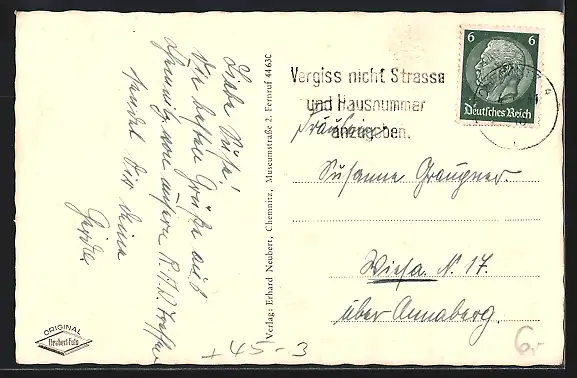 Liebe Susi!
Die besten Grüße aus
Chemnitz von unserm R.A.D. Treffen
sendet Dir deine
Gerda
ORIGINAL
Neubert-Foto
Verlag: Erhard Neubert, Chemnitz, Museumstraße 2, Fernruf 44630
Vergiss nicht Strasse
und Hausnummer
anzugeben.
6 6
Deutsches Reich
Fräulein
Susanne Graupner
Wiesa N. 17.
über Annaberg.
+45-3
6,-